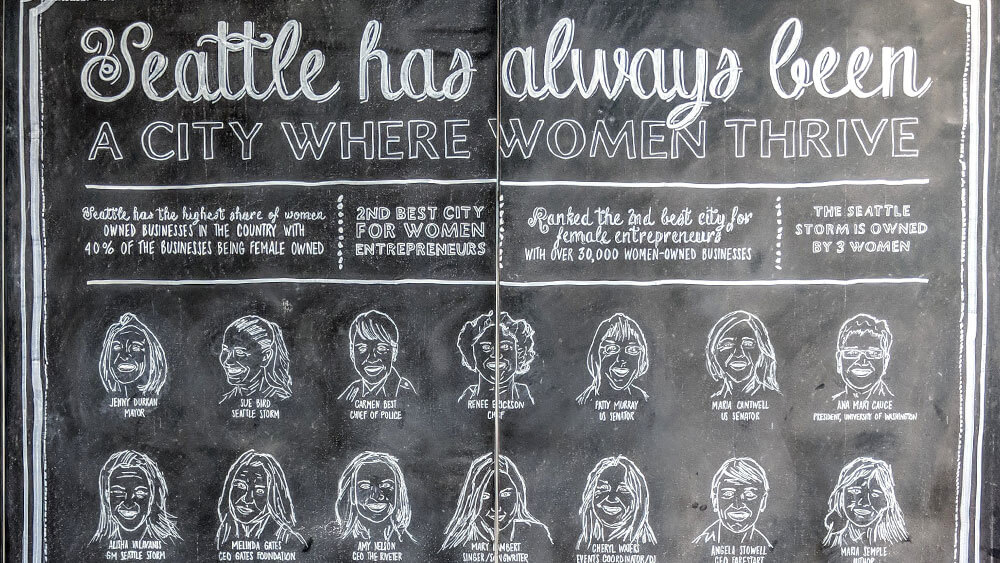 Seattle has always been
A CITY WHERE WOMEN THRIVE
Seattle has the highest share of women
OWNED BUSINESSES IN THE COUNTRY WITH
40% OF THE BUSINESSES BEING FEMALE OWNED
2ND BEST CITY
FOR WOMEN
ENTREPRENEURS
Ranked the 2nd best city for
female entrepreneurs
WITH OVER 30,000 WOMEN-OWNED BUSINESSES
THE SEATTLE
STORM IS OWNED
BY 3 WOMEN
JENNY DURKAN
MAYOR
SUE BIRD
SEATTLE STORM
CARMEN BEST
CHIEF OF POLICE
RENEE ERICKSON
CHEF
PATTY MURRAY
US SENATOR
MARIA CANTWELL
US SENATOR
ANA MARI CAUCE
PRESIDENT, UNIVERSITY OF WASHINGTON
ALISHA VALAVANIS
GM SEATTLE STORM
MELINDA GATES
CEO GATES FOUNDATION
AMY NELSON
CEO THE RIVETER
MARY LAMBERT
SINGER/SONGWRITER
CHERYL WATERS
EVENTS COORDINATOR/DJ
ANGELA STOWELL
CEO FARESTART
MARIA SEMPLE
AUTHOR